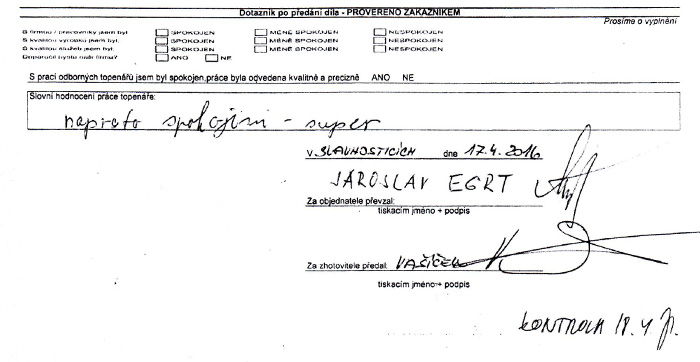 Dotazník po předání díla - PROVEŘENO ZÁKAZNÍKEM
Prosíme o vyplnění
S firmou / pracovníky jsem byl SPOKOJEN MÉNĚ SPOKOJEN NESPOKOJEN
S kvalitou výrobků jsem byl: SPOKOJEN MÉNĚ SPOKOJEN NESPOKOJEN
S kvalitou služeb jsem byl: SPOKOJEN MÉNĚ SPOKOJEN NESPOKOJEN
Doporučil byste naši firmu? ANO NE
S prací odborných topenářů jsem byl spokojen,práce byla odvedena kvalitně a precizně ANO NE
Slovní hodnocení práce topenáře:
naprosto spokojeni - super
v SLAVNOSTICÍCH dne 17.4.2016
JAROSLAV EGRT
Za objednatele převzal:
tiskacím jméno + podpis
Za zhotovitele předal: VAŠÍČEK
tiskacím jméno + podpis
KONTROLA 18.4